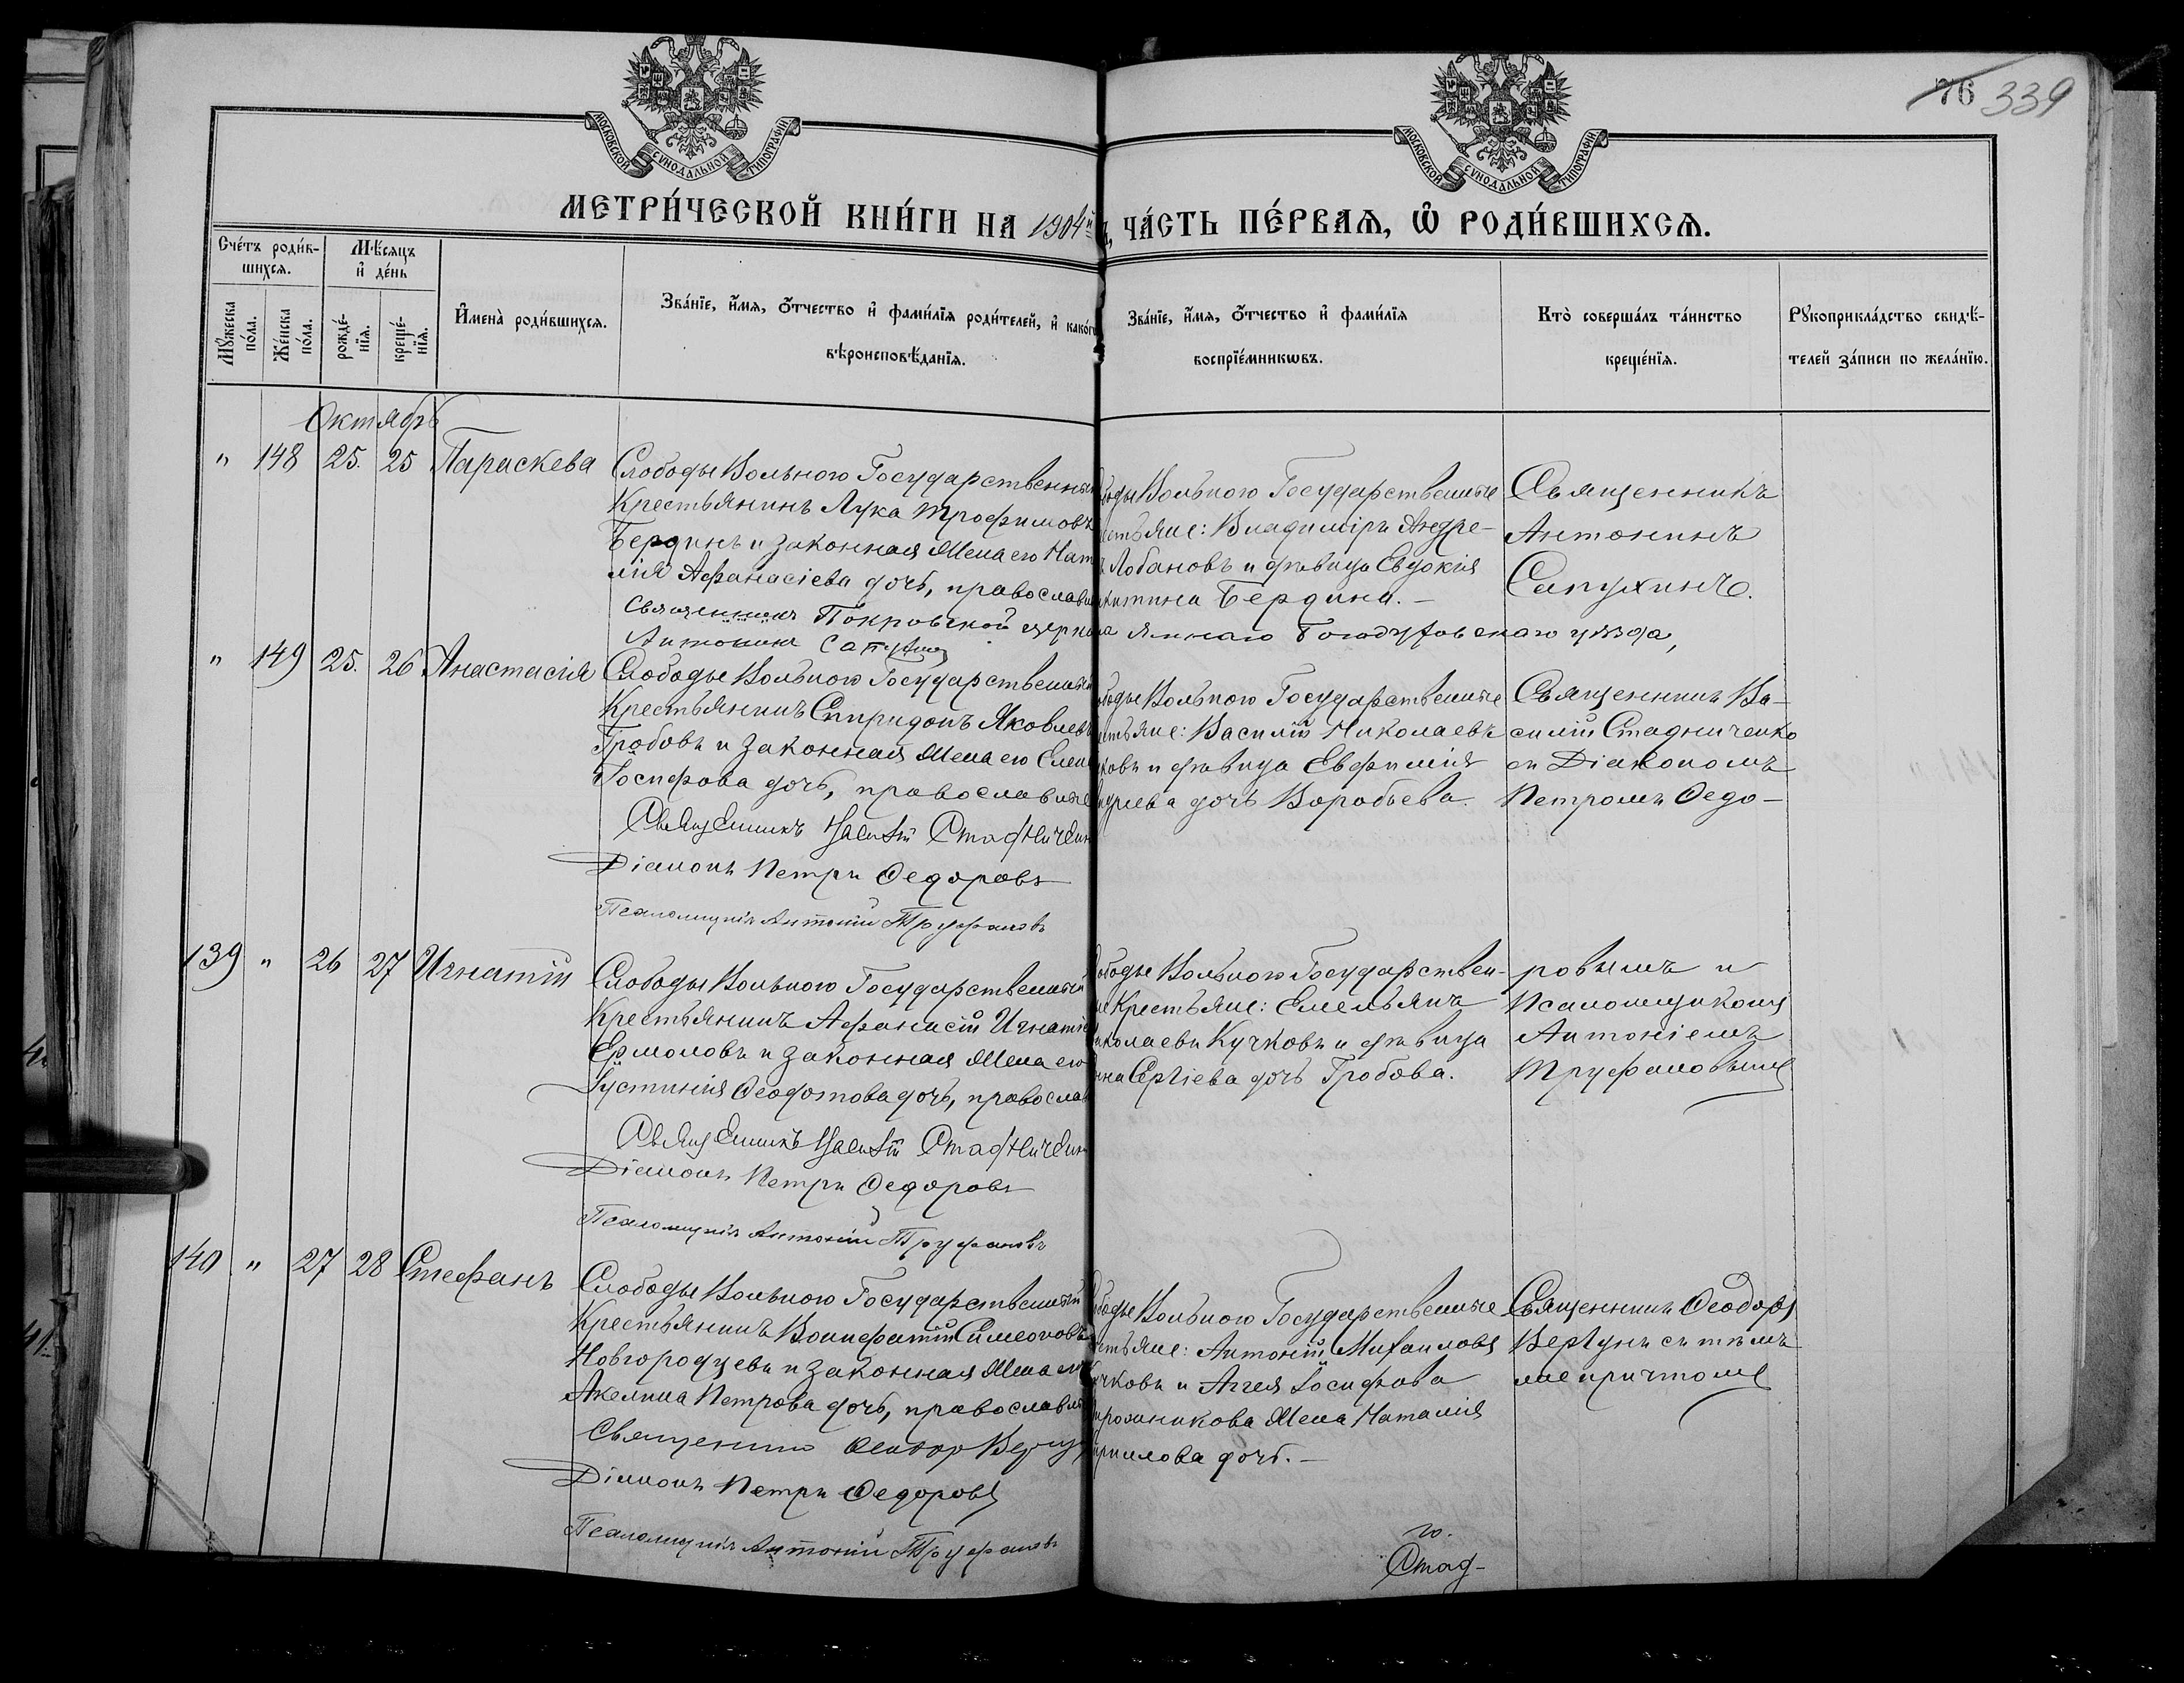 76 339
МОСКОВСКОЙ СѴНОДАЛЬНОЙ ТИПОГРАФІИ
МОСКОВСКОЙ СѴНОДАЛЬНОЙ ТИПОГРАФІИ
МЕТРИ́ЧЕСКОЙ КНИ́ГИ НА 1904й
ЧА́СТЬ ПЕ́РВАЯ, Ѡ҆ РОДИ́ВШИХСЯ.
Сче́тъ роди́в-
шихся.
Мѣ́сяцъ
и҆ де́нь
Мꙋ́жеска
по́ла.
Же́нска
по́ла.
рожде́-
нїя.
креще́-
нїя.
И҆мена̀ роди́вшихся.
Зва́нїе, и҆́мя, ѻ҆́тчество и҆ фами́лїя роди́телей, и҆ како́гѡ
вѣроисповѣ́данїя.
Зва́нїе, и҆́мя, ѻ҆́тчество и҆ фами́лїя
воспрїе́мникѡвъ.
Кто̀ соверша́лъ та́инство
креще́нїя.
Рꙋкоприкла́дство свидѣ́-
телей за́писи по жела́нїю.
Октябрь
" 148 25. 25 Параскева
Слободы Вольного Государственный
Крестьянинъ Лука Трофимовъ
Бердинъ и законная жена его Ната
лія Афанасіева дочь, православн
Священникъ Покровской церкв
Антонинъ Сапухинъ
боды Вольного Государственные
естьяне: Владиміръ Андре-
ъ Лобановъ и дѣвица Евдокія
китина Бердина. —
Богодуховскаго уѣзда,
Священникъ
Антонинъ
Сапухинъ.
" 149 25. 26 Анастасія
Слободы Вольного Государственный
Крестьянинъ Спиридонъ Яковлевъ
Гробовъ и законная жена его Елен
Іосифова дочь, православные
Священникъ Василій Стадниченк
Діаконъ Петръ Федоровъ
Псаломщикъ Антоній Труфановъ
ободы Вольного Государственные
естьяне: Василій Николаевъ
ковъ и дѣвица Евфимія
ндреева дочь Воробьева.
Священникъ Ва-
силій Стадниченко
съ Діакономъ
Петромъ Федо-
139 " 26 27 Игнатій
Слободы Вольного Государственный
Крестьянинъ Афанасій Игнатіе
Ермоловъ и законная жена его
Іустинія Феодотова дочь, православ
Священникъ Василій Стадниченк
Діаконъ Петръ Федоровъ
Псаломщикъ Антоній Труфановъ
ободы Вольного Государствен-
ые Крестьяне: Емельянъ
иколаевъ Кучковъ и дѣвица
нна Сергіева дочь Гробова.
ровымъ и
Псаломщикомъ
Антоніемъ
Труфановымъ
140 " 27 28 Стефанъ
Слободы Вольного Государственный
Крестьянинъ Вонифатій Симеоновъ
Новгородцевъ и законная жена его
Акелина Петрова дочь, православны
Священникъ Феодоръ Вергун
Діаконъ Петръ Федоровъ
Псаломщикъ Антоній Труфановъ
ободы Вольного Государственные
естьяне: Антоній Михаиловъ
учковъ и Аггея Іосифова
ирошникова жена Наталія
ирилова дочь. —
Священникъ Феодоръ
Вергунъ съ тѣмъ
же причтомъ
го.
Стад-